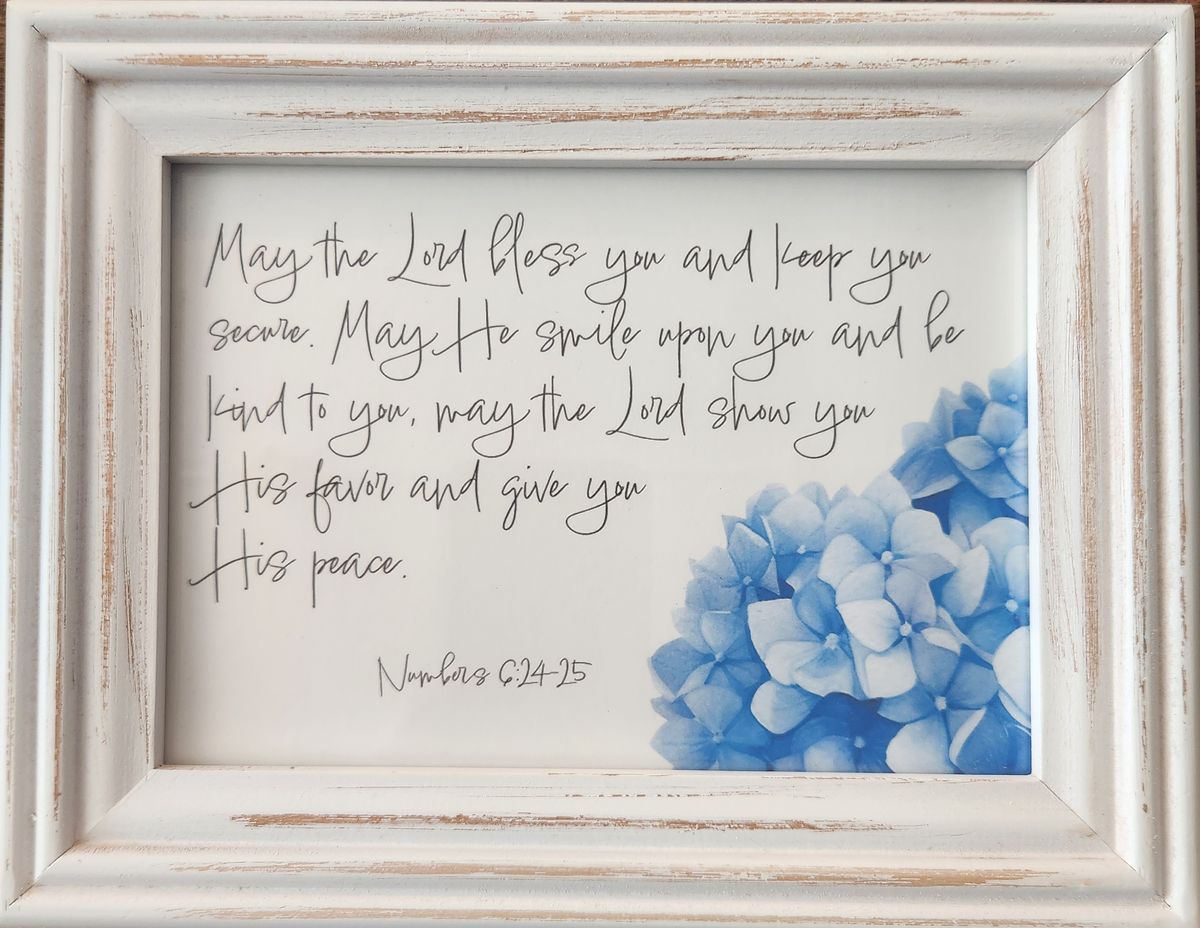 May the Lord bless you and keep you
secure. May He smile upon you and be
kind to you, may the Lord show you
His favor and give you
His peace.
Numbers 6:24-25